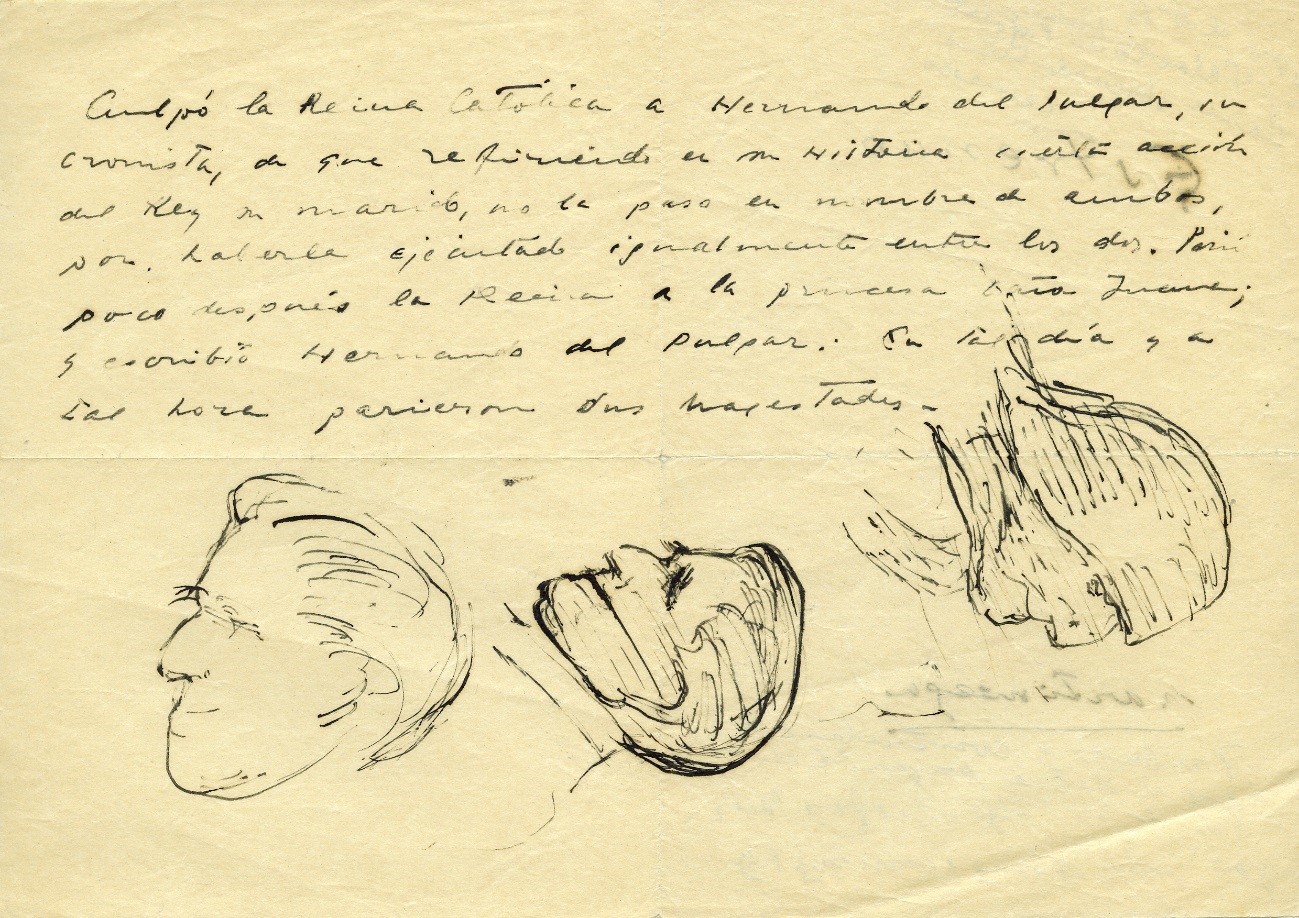 Culpó la Reina Católica a Hernando del Pulgar, su
cronista, de que refiriendo en su Historia cierta acción
del Rey su marido, no la puso en nombre de ambos,
por haberla ejecutado igualmente entre los dos. Parió
poco después la Reina a la princesa Doña Juana;
y escribió Hernando del Pulgar: En tal día y a
tal hora parieron sus Magestades.